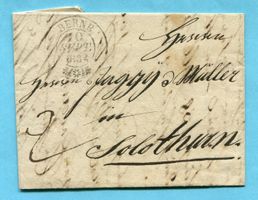 BERNE
10
SEPT
Herren
Herren Jaggÿ & Müller
in
Solothurn.